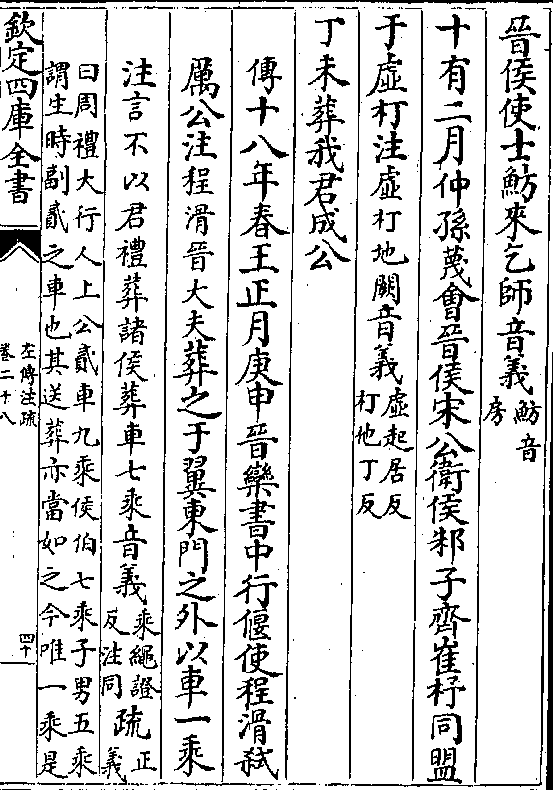 晉侯使士魴來乞師音義魴音
房
十有二月仲孫蔑會晉侯宋公衛侯邾子齊崔杼同盟
于虛朾注虛朾地闕音義虛起居反
朾他丁反
丁未葬我君成公
傳十八年春王正月庚申晉欒書中行偃使程滑弑
厲公注程滑晉大夫葬之于翼東門之外以車一乘
注言不以君禮葬諸侯葬車七乘音義乘繩證
反注同疏正
義
曰周禮大行人上公貳車九乘侯伯七乘子男五乘
謂生時副貳之車也其送葬亦當如之今唯一乘是
欽定四庫全書
左傳注疏
卷二十八
四十